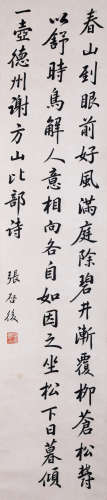 春山到眼前好風滿庭除碧井漸覆柳蒼松散
以舒時鳥解人意相向各自如因之坐松下日暮傾
一壺德州謝方山比部詩
張啓後